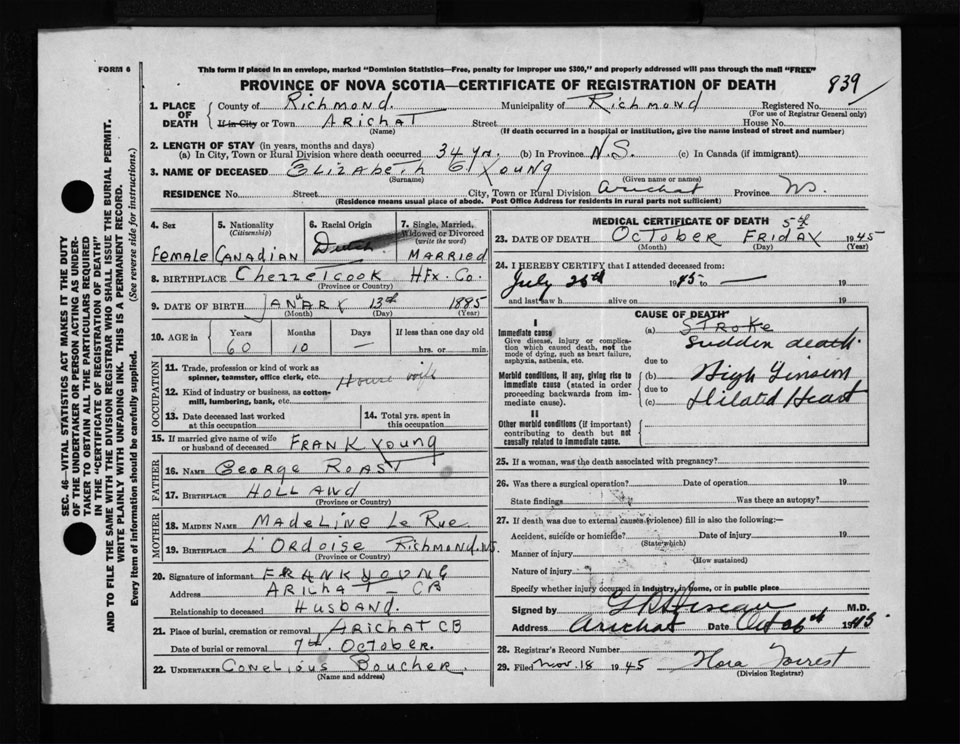 FORM 6
This form if placed in an envelope, marked "Dominion Statistics—Free, penalty for improper use $300," and properly addressed will pass through the mail "FREE"
PROVINCE OF NOVA SCOTIA—CERTIFICATE OF REGISTRATION OF DEATH 839
1. PLACE OF DEATH { County of Richmond. Municipality of Richmond Registered No.
(For use of Registrar General only)
If in City or Town ARICHAT Street House No.
(Name) (If death occurred in a hospital or institution, give the name instead of street and number)
2. LENGTH OF STAY (in years, months and days)
(a) In City, Town or Rural Division where death occurred 34 yr. (b) In Province N.S. (c) In Canada (if immigrant)
3. NAME OF DECEASED Elizabeth G Young
(Surname) (Given name or names)
RESIDENCE No. Street City, Town or Rural Division Arichat Province NS.
(Residence means usual place of abode. Post Office Address for residents in rural parts not sufficient)
4. Sex 5. Nationality (Citizenship) 6. Racial Origin 7. Single, Married, Widowed or Divorced (write the word)
Female Canadian Dutch MARRIED
8. BIRTHPLACE Chezzetcook Hfx. Co.
(Province or Country)
9. DATE OF BIRTH JANUARY 13th 1885
(Month) (Day) (Year)
10. AGE in { Years Months Days If less than one day old
60 10 — hrs. or min.
OCCUPATION
11. Trade, profession or kind of work as spinner, teamster, office clerk, etc. House wife
12. Kind of industry or business, as cotton-mill, lumbering, bank, etc.
13. Date deceased last worked at this occupation 14. Total yrs. spent in this occupation
15. If married give name of wife or husband of deceased FRANK Young
FATHER
16. NAME GEORGE ROAST
17. BIRTHPLACE HOLLAND
(Province or Country)
MOTHER
18. MAIDEN NAME MADELINE Le Rue
19. BIRTHPLACE L'ORDOISE RICHMOND. NS.
(Province or Country)
20. Signature of informant FRANK YOUNG
Address ARICHAT - CB
Relationship to deceased HUSBAND.
21. Place of burial, cremation or removal ARICHAT CB
Date of burial or removal 7th. OCTOBER.
22. UNDERTAKER CONELIOUS BOUCHER.
(Name and address)
MEDICAL CERTIFICATE OF DEATH
23. DATE OF DEATH OCTOBER FRIDAY 5th 1945
(Month) (Day) (Year)
24. I HEREBY CERTIFY that I attended deceased from:
July 26th 1945 to —
and last saw h alive on 19
CAUSE OF DEATH
I
Immediate cause
Give disease, injury or complication which caused death, not the mode of dying, such as heart failure, asphyxia, asthenia, etc.
(a) STROKE
Sudden death.
due to
Morbid conditions, if any, giving rise to immediate cause (stated in order proceeding backwards from immediate cause).
(b) High Tension
due to
(c) Dilated Heart
II
Other morbid conditions (if important) contributing to death but not causally related to immediate cause.
25. If a woman, was the death associated with pregnancy?
26. Was there a surgical operation? Date of operation 19
State findings Was there an autopsy?
27. If death was due to external causes (violence) fill in also the following:—
Accident, suicide or homicide? Date of injury 19
(State which)
Manner of injury
(How sustained)
Nature of injury
Specify whether injury occurred in industry, in home, or in public place
Signed by M.D.
Address Arichat Date Oct 6th 1945
28. Registrar's Record Number
29. Filed Nov. 18 1945 Flora Forrest
(Division Registrar)
SEC. 46—VITAL STATISTICS ACT MAKES IT THE DUTY
OF THE UNDERTAKER OR PERSON ACTING AS UNDERTAKER TO OBTAIN ALL THE PARTICULARS REQUIRED
IN THE "CERTIFICATE OF REGISTRATION OF DEATH"
AND TO FILE THE SAME WITH THE DIVISION REGISTRAR WHO SHALL ISSUE THE BURIAL PERMIT.
WRITE PLAINLY WITH UNFADING INK. THIS IS A PERMANENT RECORD.
Every item of information should be carefully supplied. (See reverse side for instructions.)